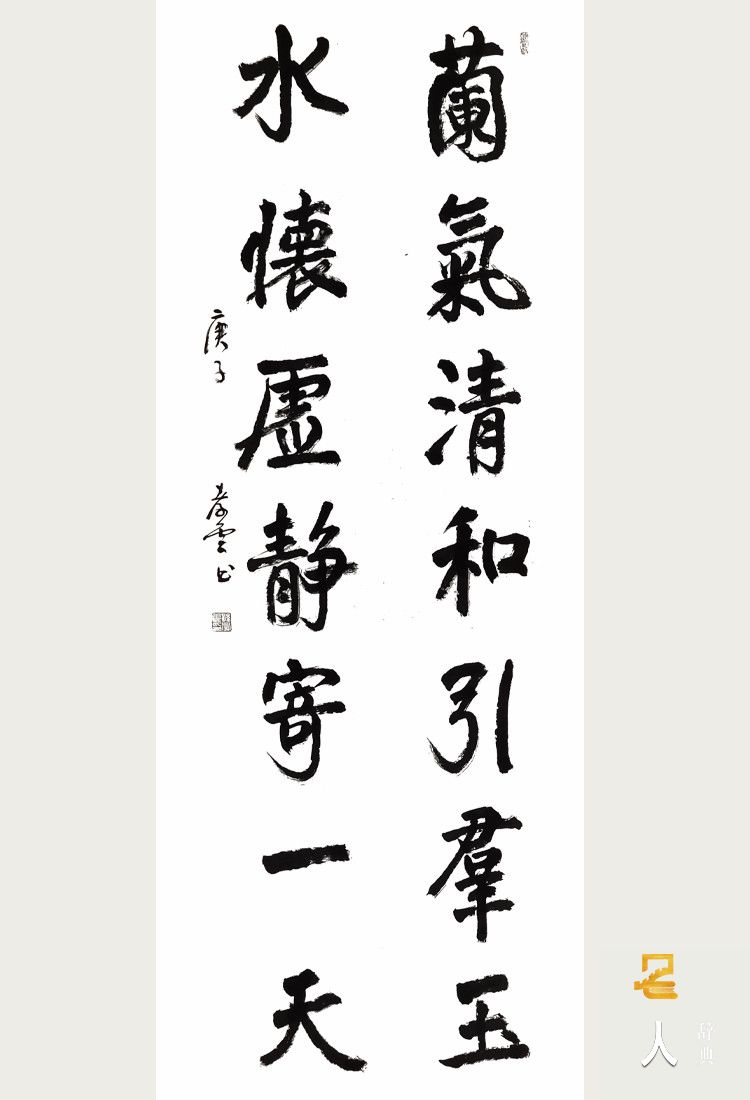 蘭氣清和引羣玉
水懷虛靜寄一天
庚子
雲書
人
辞典